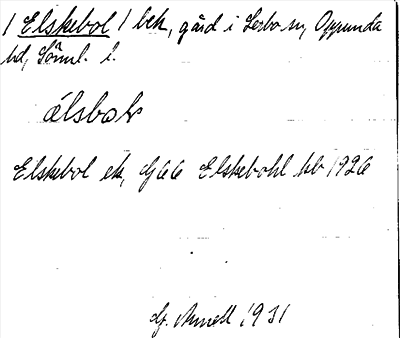 1 Elskebol 1 bek, gård i Lerbo sn, Oppunda
hd, Söml. l.
élsbok
Elskebol ek, Gj 66 Elskebohl kb 1926
Gj. Arnell 1931